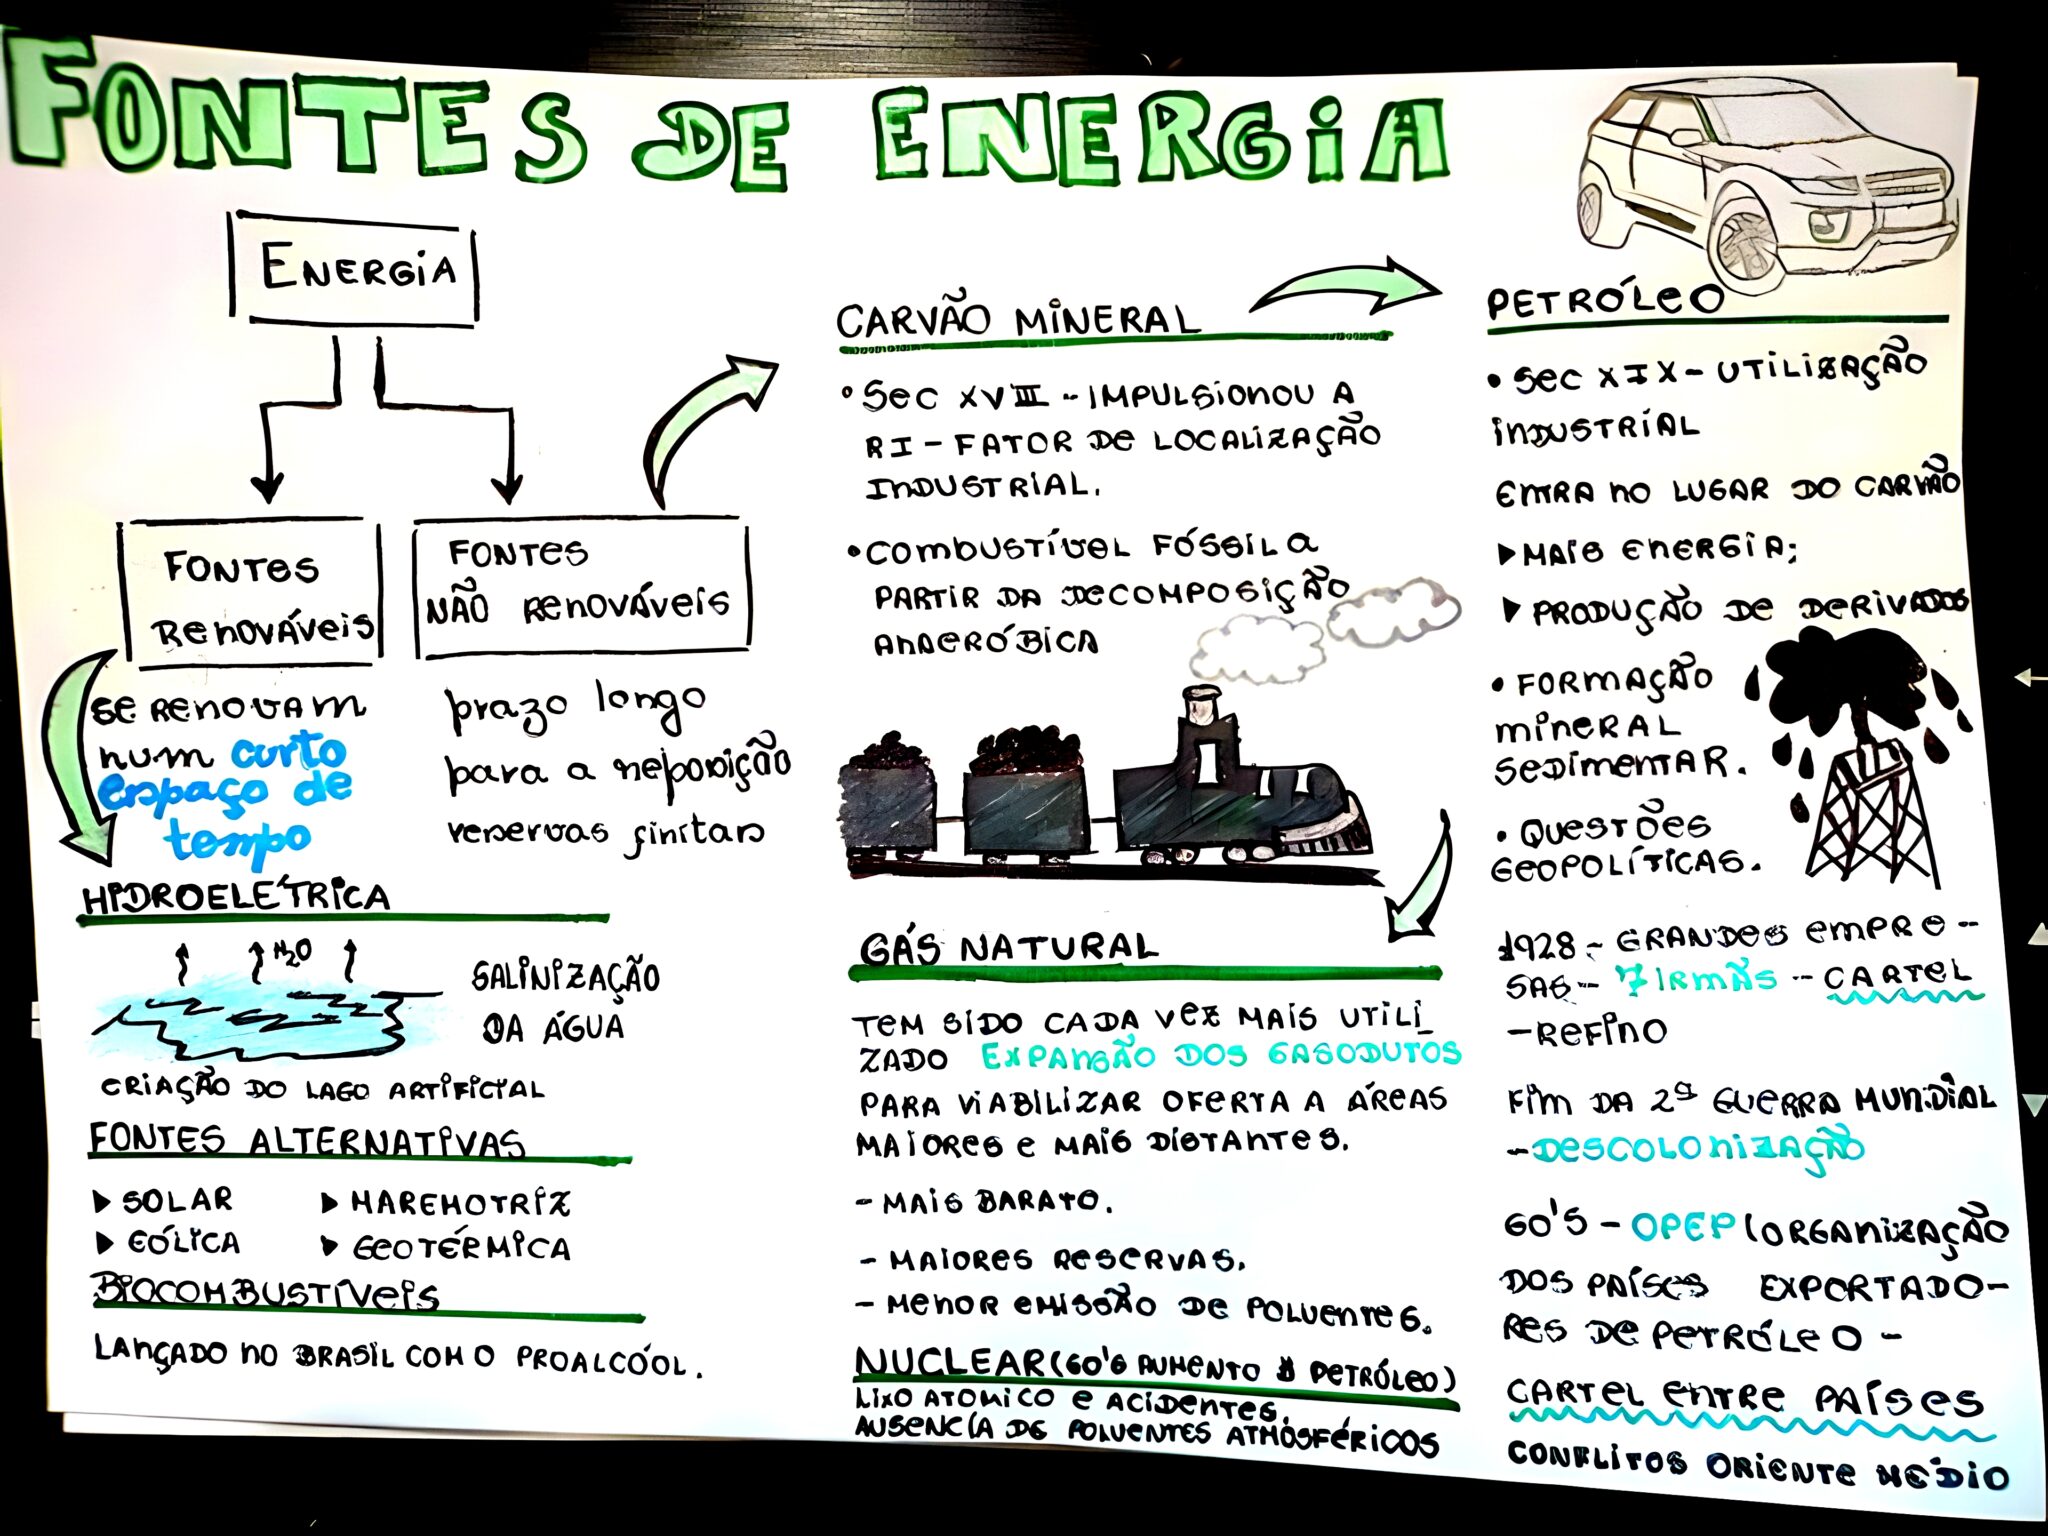 FONTES DE ENERGIA
ENERGIA
FONTES
RENOVÁVEIS
FONTES
NÃO RENOVÁVEIS
SE RENOVAM
num curto
espaço de
tempo
prazo longo
para a reposição
reservas finitas
HIDROELÉTRICA
H2O
SALINIZAÇÃO
DA ÁGUA
CRIAÇÃO DO LAGO ARTIFICIAL
FONTES ALTERNATIVAS
▶ SOLAR
▶ EÓLICA
▶ MAREMOTRIZ
▶ GEOTÉRMICA
BIOCOMBUSTÍVEIS
LANÇADO NO BRASIL COM O PROALCÓOL.
CARVÃO MINERAL
• SEC XVIII - IMPULSIONOU A
RI - FATOR DE LOCALIZAÇÃO
INDUSTRIAL.
• COMBUSTÍVEL FÓSSIL A
PARTIR DA DECOMPOSIÇÃO
ANAERÓBICA
GÁS NATURAL
TEM SIDO CADA VEZ MAIS UTILI_
ZADO EXPANSÃO DOS GASODUTOS
PARA VIABILIZAR OFERTA A ÁREAS
MAIORES E MAIS DISTANTES.
- MAIS BARATO.
- MAIORES RESERVAS.
- MENOR EMISSÃO DE POLUENTES.
NUCLEAR (60'S AUMENTO $ PETRÓLEO)
LIXO ATOMICO E ACIDENTES.
AUSENCÍA DE POLUENTES ATMOSFÉRICOS
PETRÓLEO
• SEC XIX - UTILIZAÇÃO
INDUSTRIAL
ENTRA NO LUGAR DO CARVÃO
▶ MAIS ENERGIA;
▶ PRODUÇÃO DE DERIVADOS
• FORMAÇÃO
MINERAL
SEDIMENTAR.
• QUESTÕES
GEOPOLÍTICAS.
1928 - GRANDES EMPRE-
SAS - 7 IRMÃS - CARTEL
- REFINO
FIM DA 2ª GUERRA MUNDIAL
- DESCOLONIZAÇÃO
60'S - OPEP (ORGANIZAÇÃO
DOS PAÍSES EXPORTADO-
RES DE PETRÓLEO -
CARTEL ENTRE PAÍSES
CONFLITOS ORIENTE MÉDIO